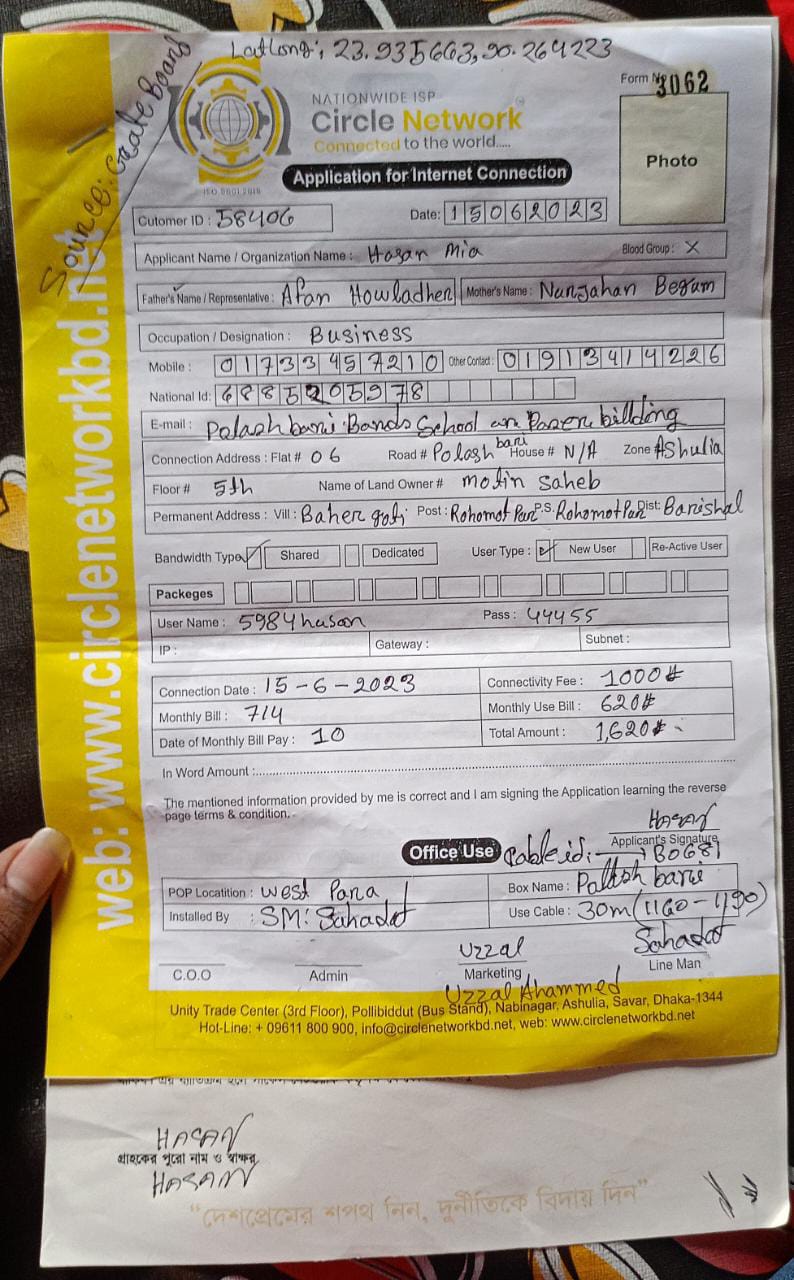 LatLong: 23.935663,90.264223
Source: Gate Board
Form No 3062
NATIONWIDE ISP
Circle Network
Connected to the world.....
ISO 9001:2015
Photo
Application for Internet Connection
Cutomer ID : 58406 Date: 15062023
Applicant Name / Organization Name : Hasan Mia Blood Group : X
Father's Name / Representative : Afan Howladher Mother's Name : Nurjahan Begum
Occupation / Designation : Business
Mobile : 01733457210 Other Contact : 01913414226
National Id: 6885205978
E-mail : Palashbari Bands School an Paser billding
Connection Address : Flat # 06 Road # Polashbari House # N/A Zone Ashulia
Floor # 5th Name of Land Owner # motin saheb
Permanent Address : Vill : Baher goti Post : Rohomot Pur P.S: Rohomot Pur Dist: Barishal
Bandwidth Type ✓ Shared Dedicated User Type : ✓ New User Re-Active User
Packeges
User Name : 5984hasan Pass : 44455
IP : Gateway : Subnet :
Connection Date : 15-6-2023 Connectivity Fee : 1000৳
Monthly Bill : 714 Monthly Use Bill : 620৳
Date of Monthly Bill Pay : 10 Total Amount : 1,620৳
In Word Amount :
The mentioned information provided by me is correct and I am signing the Application learning the reverse
page terms & condition.
HASAN
Applicant's Signature
Office Use Cable id: → B0681
POP Locatition : West Para Box Name : Palash barie
Installed By : SM: Sahadat Use Cable : 30m (1160-1190)
Uzzal Sahadat
C.O.O Admin Marketing Line Man
Uzzal Ahammed
Unity Trade Center (3rd Floor), Pollibiddut (Bus Stand), Nabinagar, Ashulia, Savar, Dhaka-1344
Hot-Line: + 09611 800 900, info@circlenetworkbd.net, web: www.circlenetworkbd.net
web: www.circlenetworkbd.net
HASAN
গ্রাহকের পুরো নাম ও স্বাক্ষর
HASAN
“দেশপ্রেমের শপথ নিন, দুর্নীতিকে বিদায় দিন”